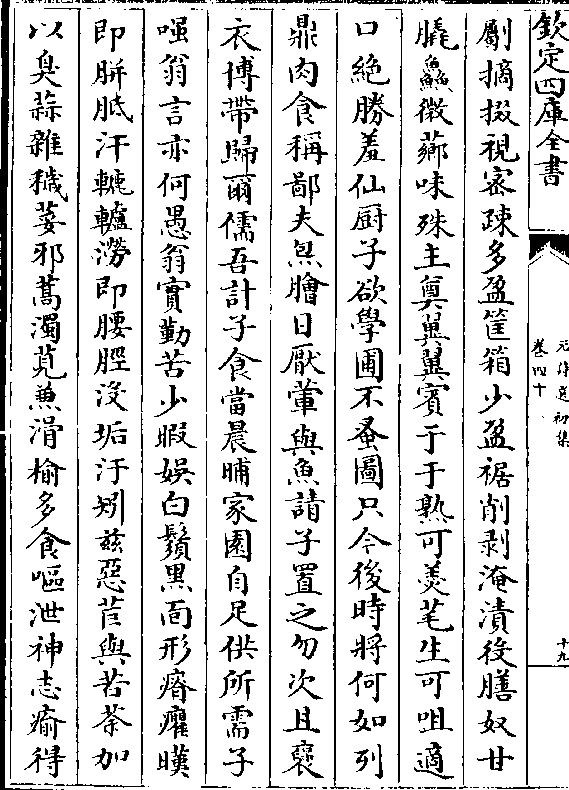 欽定四庫全書
元詩選初集
卷四十
十九
劚摘掇視宻疎多盈筐箱少盈裾削剥淹漬後膳奴甘
膬鱻微薌味殊主奠翼翼賓于于熟可羮芼生可咀適
口絶勝羞仙厨子欲學圃不蚤圖只今後時將何如列
鼎肉食稱鄙夫炰膾日厭葷與魚請子置之勿次且襃
衣博帶歸爾儒吾計子食當晨晡家園自足供所需子
嗤翁言亦何愚翁實勤苦少暇娱白鬚黒面形瘠癯暵
即胼胝汗轆轤澇即腰脛没垢汙矧兹惡苣與苦荼加
以臭蒜雜穢蔞邪蒿濁莧兼滑榆多食嘔泄神志瘉得